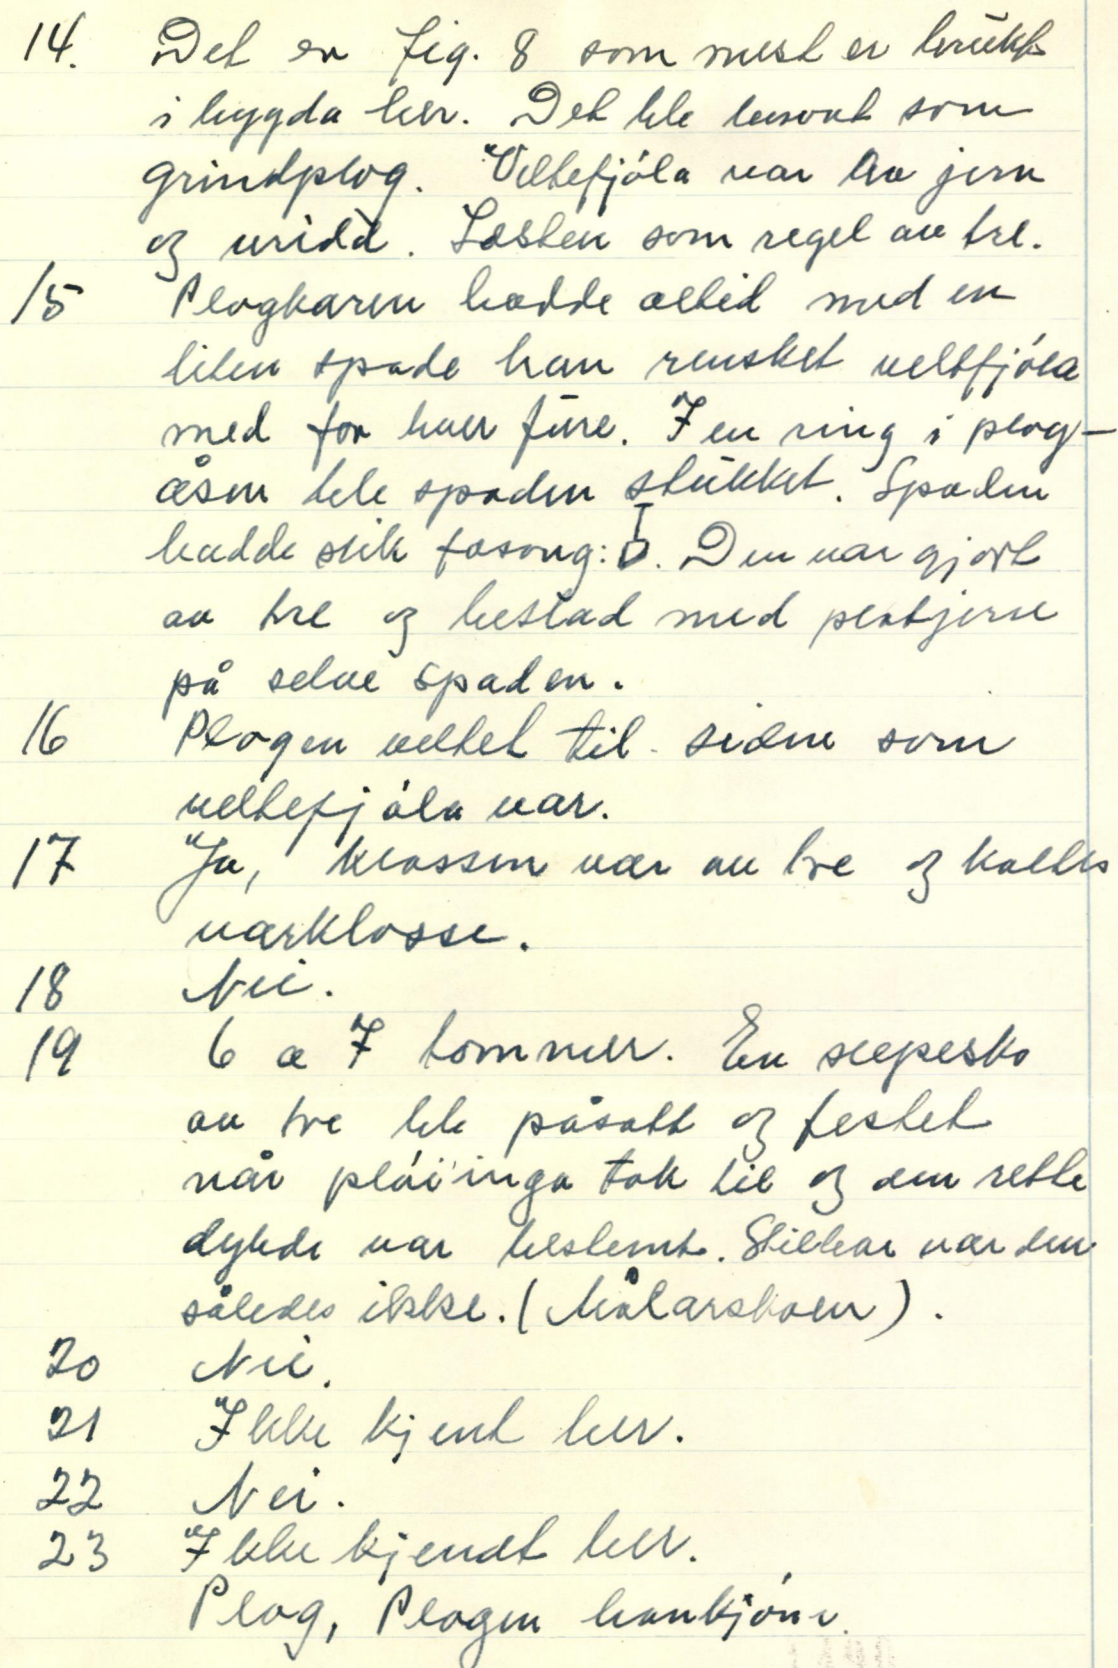 14. Det er fig. 8 som mest er brukt
i bygda her. Det ble benevnt som
grindplog. Veltefjóla var av jern
og vridd. Løsten som regel av tre.
15 Plogkaren hadde altid med en
liten spade han rensket veltfjóla
med for hver fure. I en ring i plog-
åsen ble spaden stukket. Spaden
hadde slik fasong: . Den var gjort
av tre og beslåd med platjern
på selve spaden.
16 Plogen veltet til sidne som
veltefjóla var.
17 Ja, klossen var av tre og kaltes
varklosse.
18 Nei.
19 6 a 7 tommer. En slepesko
av tre ble påsatt og festet
når plóiinga tok til og den rette
dybde var bestemt. Stillbar var den
således ikke. (Mólarskoen).
20 Nei.
21 Ikke kjent her.
22 Nei.
23 Ikke kjendt her.
Plog, Plogen hankjónn.